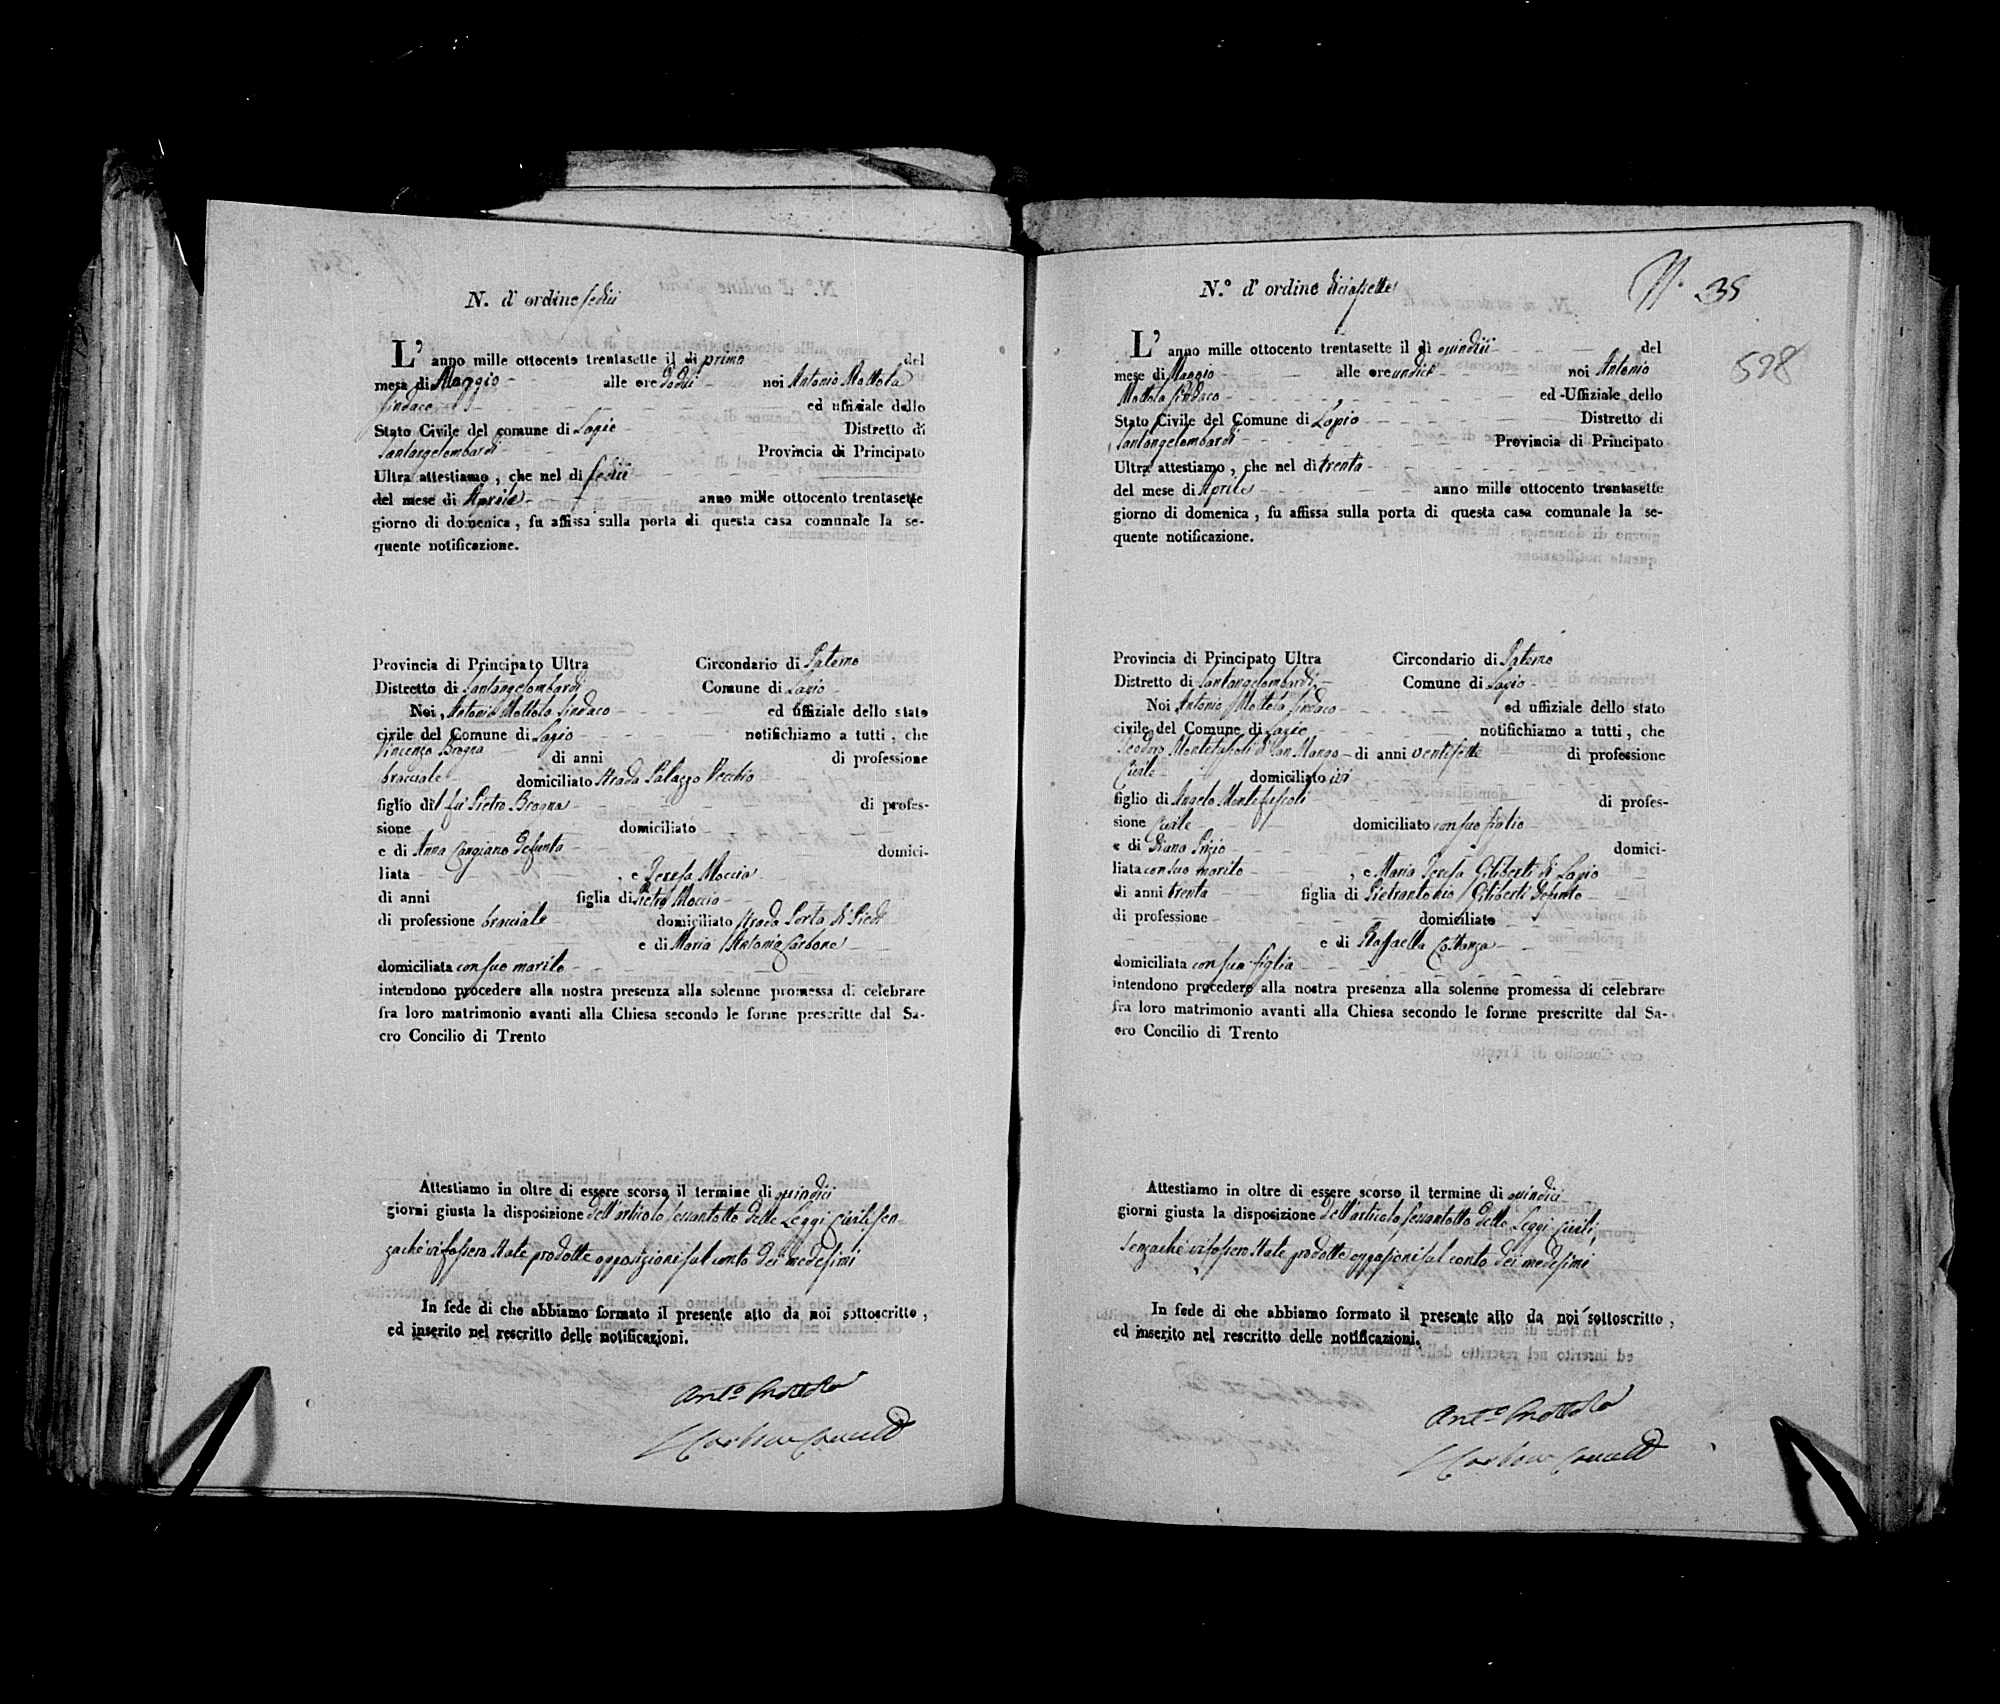 N. d' ordine sedici
L' anno mille ottocento trentasette il di primo del
mese di Maggio alle ore dodici noi Antonio Mottola
Sindaco ed uffiziale dello
Stato Civile del comune di Lapio Distretto di
Santangelombardi Provincia di Principato
Ultra attestiamo, che nel di sedici
del mese di Aprile anno mille ottocento trentasette
giorno di domenica, fu affissa sulla porta di questa casa comunale la se-
quente notificazione.
Provincia di Principato Ultra Circondario di Paterno
Distretto di Santangelombardi Comune di Lapio
Noi, Antonio Mottola Sindaco ed uffiziale dello stato
civile del Comune di Lapio notifichiamo a tutti, che
Vincenzo Brogna di anni di professione
bracciale domiciliato Strada Palazzo Vecchio
figlio del fu Pietro Brogna di profes-
sione domiciliato
e di Anna Cangiano defunta domici-
liata , e Teresa Moccia
di anni figlia di Pietro Moccia
di professione bracciale domiciliato Strada Porta di Piedi
e di Maria Antonia Carbone
domiciliata con suo marito
intendono procedere alla nostra presenza alla solenne promessa di celebrare
fra loro matrimonio avanti alla Chiesa secondo le forme prescritte dal Sa-
cro Concilio di Trento
Attestiamo in oltre di essere scorso il termine di quindici
giorni giusta la disposizione dell'articolo sessantotto delle Leggi Civili sen-
zaché vi fossero state prodotte opposizioni sul conto dei medesimi
In fede di che abbiamo formato il presente atto da noi sottoscritto,
ed inserito nel rescritto delle notificazioni.
Ant.o Mottola
N.° d' ordine diciassette N. 35
528
L' anno mille ottocento trentasette il di quindici del
mese di Maggio alle ore undici noi Antonio
Mottola Sindaco ed Uffiziale dello
Stato Civile del Comune di Lapio Distretto di
Santangelombardi Provincia di Principato
Ultra attestiamo, che nel di trenta
del mese di Aprile anno mille ottocento trentasette
giorno di domenica, fu affissa sulla porta di questa casa comunale la se-
quente notificazione.
Provincia di Principato Ultra Circondario di Paterno
Distretto di Santangelombardi Comune di Lapio
Noi Antonio Mottola Sindaco ed uffiziale dello stato
civile del Comune di Lapio notifichiamo a tutti, che
Teodoro Montefuscoli di San Mango di anni ventisette di professione
Civile domiciliato ivi
figlio di Angelo Montefuscoli di profes-
sione Civile domiciliato con suo figlio
e di Diana domici-
liata con suo marito , e Maria Teresa Giliberti di Lapio
di anni trenta figlia di Pietrantonio Giliberti defunto
di professione domiciliato
e di Raffaella Costanza
domiciliata con sua figlia
intendono procedere alla nostra presenza alla solenne promessa di celebrare
fra loro matrimonio avanti alla Chiesa secondo le forme prescritte dal Sa-
cro Concilio di Trento
Attestiamo in oltre di essere scorso il termine di quindici
giorni giusta la disposizione dell'articolo sessantotto delle Leggi Civili,
senzaché vi fossero state prodotte opposizioni sul conto dei medesimi
In fede di che abbiamo formato il presente atto da noi sottoscritto,
ed inserito nel rescritto delle notificazioni.
Ant.o Mottola